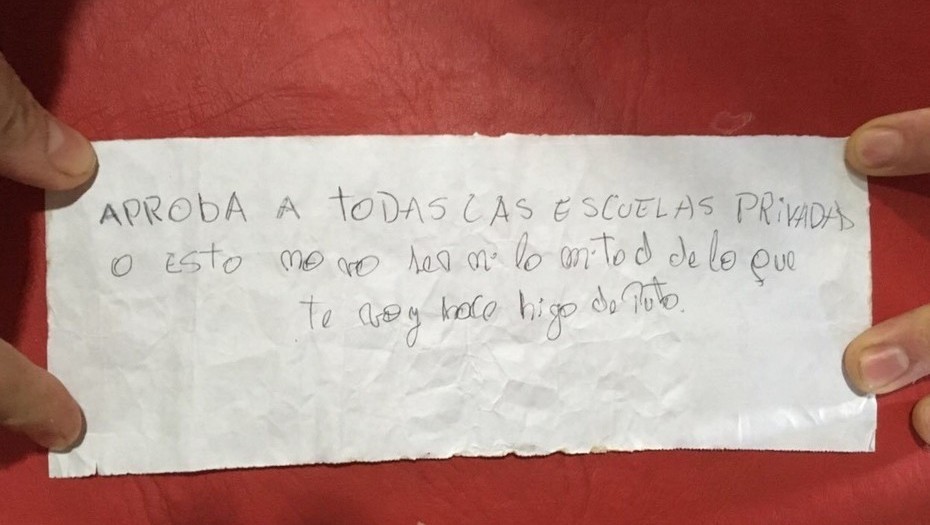 APROBA A TODAS LAS ESCUELAS PRIVADAS
O ESTO no va ser ni la mitad de lo que
te voy hace higo de Puto.